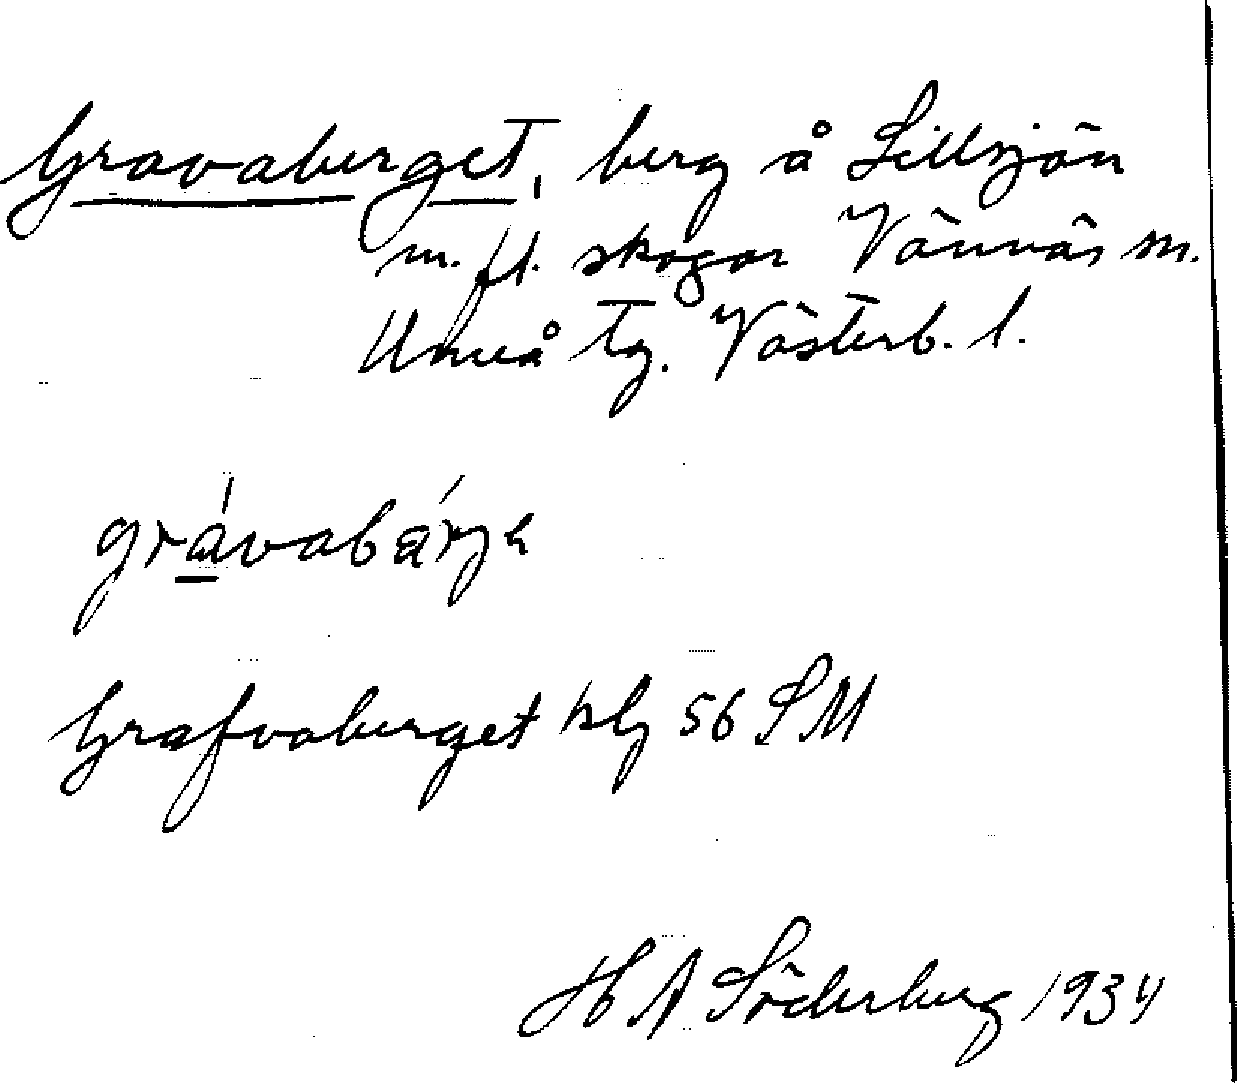 Gravaberget, berg å Lillsjön
m. fl. skogar Vännäs sn.
Umeå tg. Västerb. l.
grávabárjə
Grafvaberget blg 56 SM
H A Söderberg 1934